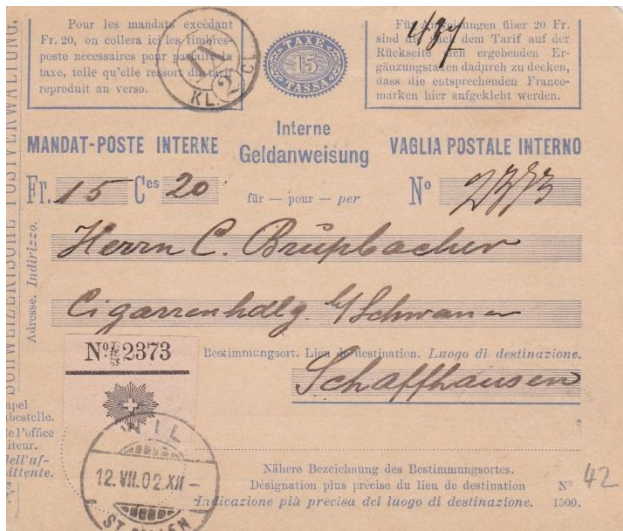 Pour les mandats excédant
Fr. 20, on collera ici les timbres-
poste nécessaires pour parfaire la
taxe, telle qu'elle ressort du tarif
reproduit au verso.
KL. 2 CL.
TAXE
15
TASSA
Für Anweisungen über 20 Fr.
sind die nach dem Tarif auf der
Rückseite sich ergebenden Er-
gänzungstaxen dadurch zu decken,
dass die entsprechenden Franco-
marken hier aufgeklebt werden.
MANDAT-POSTE INTERNE
Interne
Geldanweisung
VAGLIA POSTALE INTERNO
Fr. 15 Ces 20
für — pour — per
No 2373
Herrn C. Brüpbacher
Cigarrenhdlg. z/Schwanen
No 2373
Bestimmungsort. Lieu de destination. Luogo di destinazione.
Schaffhausen
WIL
12.VII.02.XII–
ST. GALLEN
Nähere Bezeichnung des Bestimmungsortes.
Désignation plus précise du lieu de destination
Indicazione più precisa del luogo di destinazione.
No 42
1500.
SCHWEIZERISCHE POSTVERWALTUNG.
Adresse. Indirizzo.